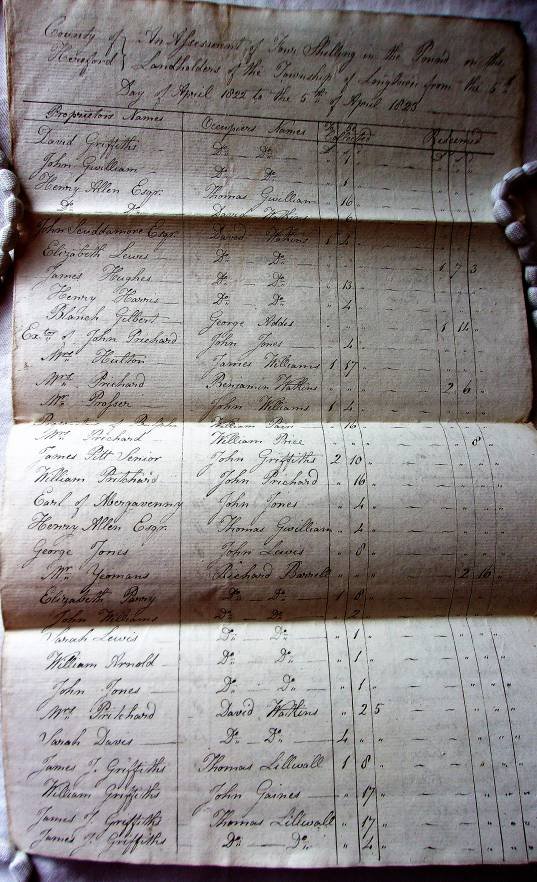 County of } An Assessment of Four Shilling in the Pound on the
Hereford } Landholders of the Township of Longtown from the 5th
Day of April 1822 to the 5th of April 1823
Proprietors Names Occupiers Names Redeemed
David Griffiths Do Do " 7 "
John Gwilliam Do Do " 1 "
Henry Allen Esqr. Thomas Gwilliam " 16 "
Do Do David Watkins " 6 "
John Scuddamore Esqr. David Watkins 1 4 "
Elizabeth Lewis Do Do 1 7 3
James Hughes Do Do " 13 "
Henry Harris Do Do " 4 "
Blanch Gilbert George Addis 1 11 "
Exrs of John Prichard John Jones " 4 "
Mrs Hutton James Williams 1 17 "
Mrs Prichard Benjamin Watkins " " " 2 6 "
Mr Prosser John Williams 1 4 "
William Parr " 16 "
Mrs Prichard William Price " " " " 8 "
James Pitt Senior John Griffiths 2 10 "
William Pritchard John Prichard " 16 "
Earl of Abergavenny John Jones " 4 "
Henry Allen Esqr. Thomas Gwilliam " 4 "
George Jones John Lewis " 8 "
Mr Yeomans Richard " " " 2 16 "
Elizabeth Parry Do Do 1 8 "
John Williams Do Do " 2 "
Sarah Lewis Do Do " 1 "
William Arnold Do Do " 1 "
John Jones Do Do " 1 "
Mrs Prichard David Watkins " 2 5
Sarah Davis Do Do 4 " "
James T. Griffiths Thomas Lillwall 1 8 "
William Griffiths John Gaines " 17 "
James T. Griffiths Thomas Lillwall " 17 "
James T. Griffiths Do Do " 4 "